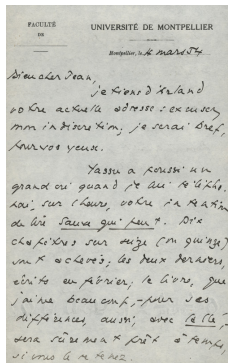 FACULTÉ
DE
UNIVERSITÉ DE MONTPELLIER
Montpellier, le 4 mars 54
Bien cher Jean,
je tiens d'
votre actuelle adresse : excusez
mon indiscrétion ; je serai bref,
pour vos yeux.
a poussi un
grand cri quand je lui
sur l'heure, votre intention
de lire Sauve qui peut. Dix
chapitres sur seize (ou quinze)
sont achevés ; les deux derniers,
écrits en février ; le livre, que
j'aime beaucoup, - pour ses
différences aussi, avec la Clé, -
sera sûrement prêt à temps,
si vous le retenez.